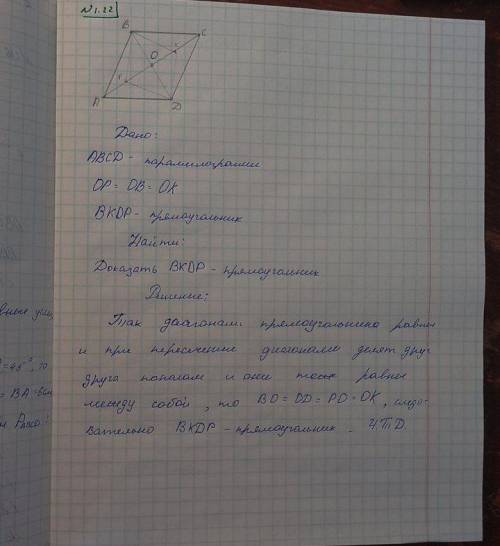 №1.22
B C
O
K
P
A D
Дано:
ABCD - параллелограмм
OP = OB = OK
BKDP - прямоугольник
Найти:
Доказать BKDP - прямоугольник
Решение:
Так диагонали прямоугольника равны
и при пересечение диагонами делят друг
друга попалам и они тоже равны
между собой, то BO = OD = PO = OK, следо-
вательно BKDP - прямоугольник. ЧТД.
= 45°, то
= BA